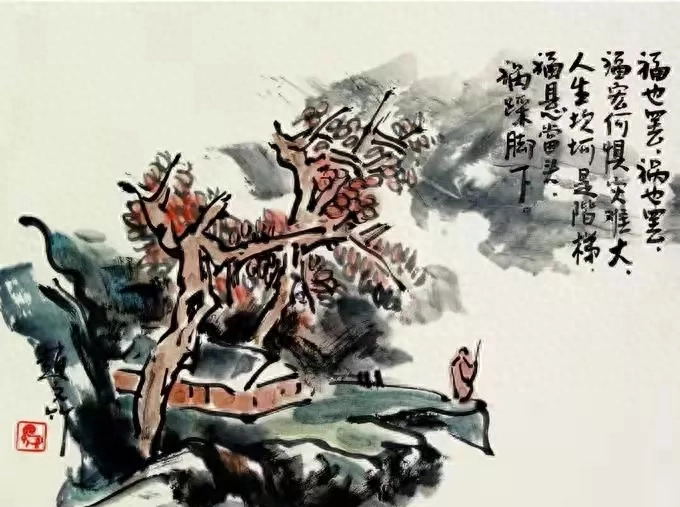 福也罢，祸也罢，
福宏何惧灾难大，
人生坎坷是階梯，
福悬當头，
祸踩脚下。